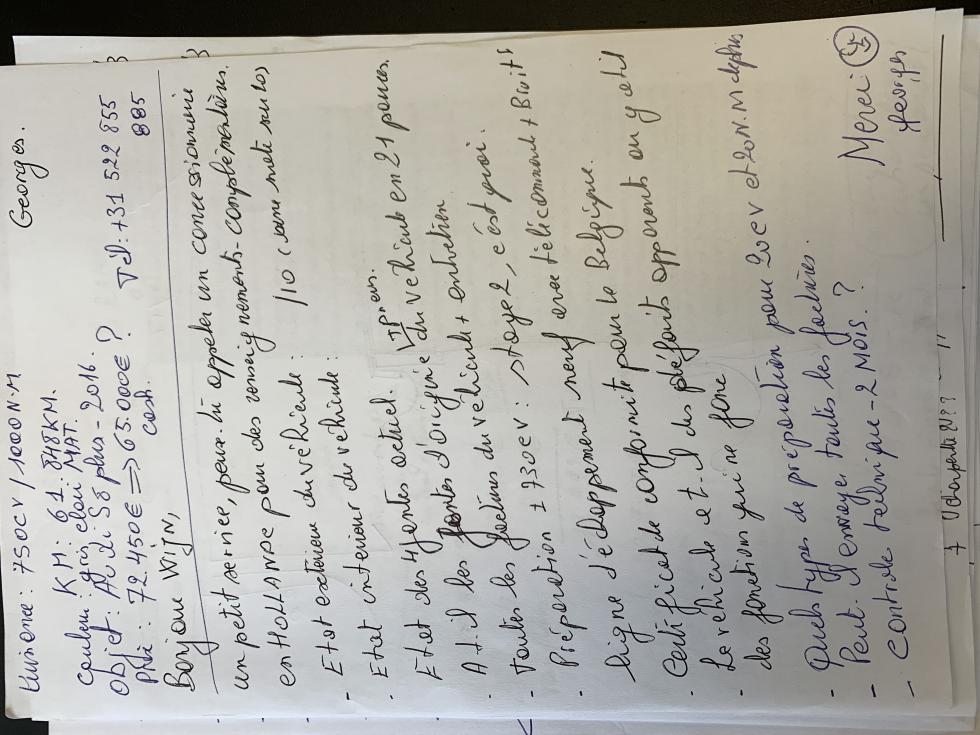 Puissance : 750CV / 1000N.M Georges.
KM: 61.848KM.
Couleur: gris clair MAT.
Objet: Audi S8 plus - 2016.
Prix: 72.450€ => 65.000€ ? Tel: +31 522 855
cash. 885
Bonjour WIJN,
un petit service, peux-tu appeler un concessionnaire
en HOLLANDE pour des renseignements complémentaires.
- Etat extérieur du véhicule : /10 (une note sur 10)
- Etat intérieur du véhicule :
- Etat des 4 jentes actuel. VIP en.
- A t-il les jentes d'origine du véhicule en 21 pouces.
- Toutes les factures du véhicule + entretien
- Préparation ± 730cv : stage 2, c'est quoi.
ligne d'échappement neuf avec télécommande + Bruit
- Certificat de conformité pour la Belgique.
- Le véhicule a t-il des défauts apparents ou y a til
des fonctions qui ne fonc
- Quels types de préparation pour 20cv et 20N.M de plus
- Peut-il envoyer toutes les factures.
- Controle technique - 2 MOIS. ?
Merci
Georges